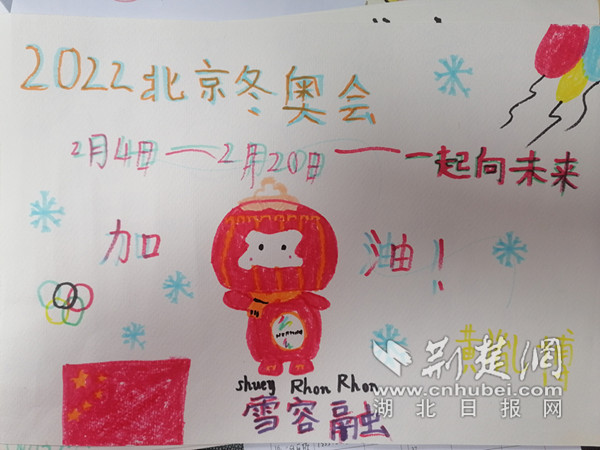 2022北京冬奥会
2月4日——2月20日——一起向未来
加油!
shuey Rhon Rhon
雪容融
荆楚网
www.cnhubei.com
湖北日报网